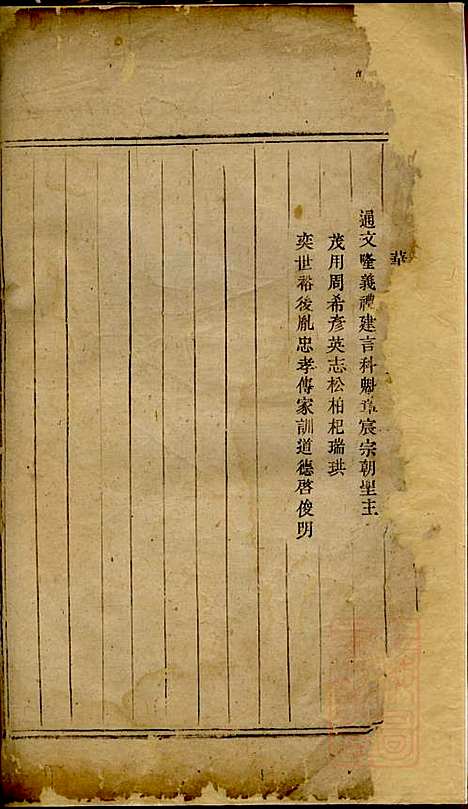 華
通文隆義禮建言科魁章宸宗朝聖主
茂用周希彦英志松柏杞瑞珙
奕世裕後胤忠孝傳家訓道德啓俊明